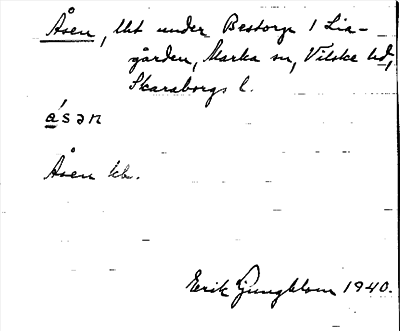 Åsen, lht under Bestorp 1 Lia-
gården, Marka sn, Vilske hd,
Skaraborgs l.
å´sən
Åsen kb.
Erik Ljungblom 1940.